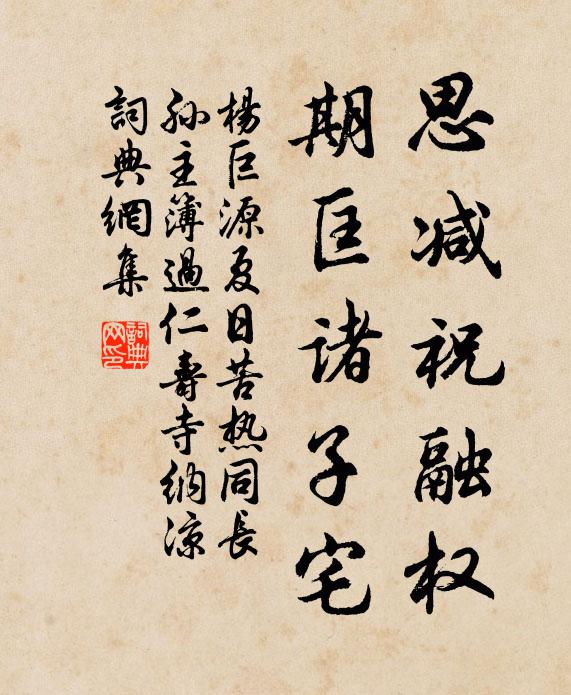 思减祝融权
期匡诸子宅
楊巨源夏日苦热同長
孙主簿過仁壽寺纳凉
詞典網集
詞典网印